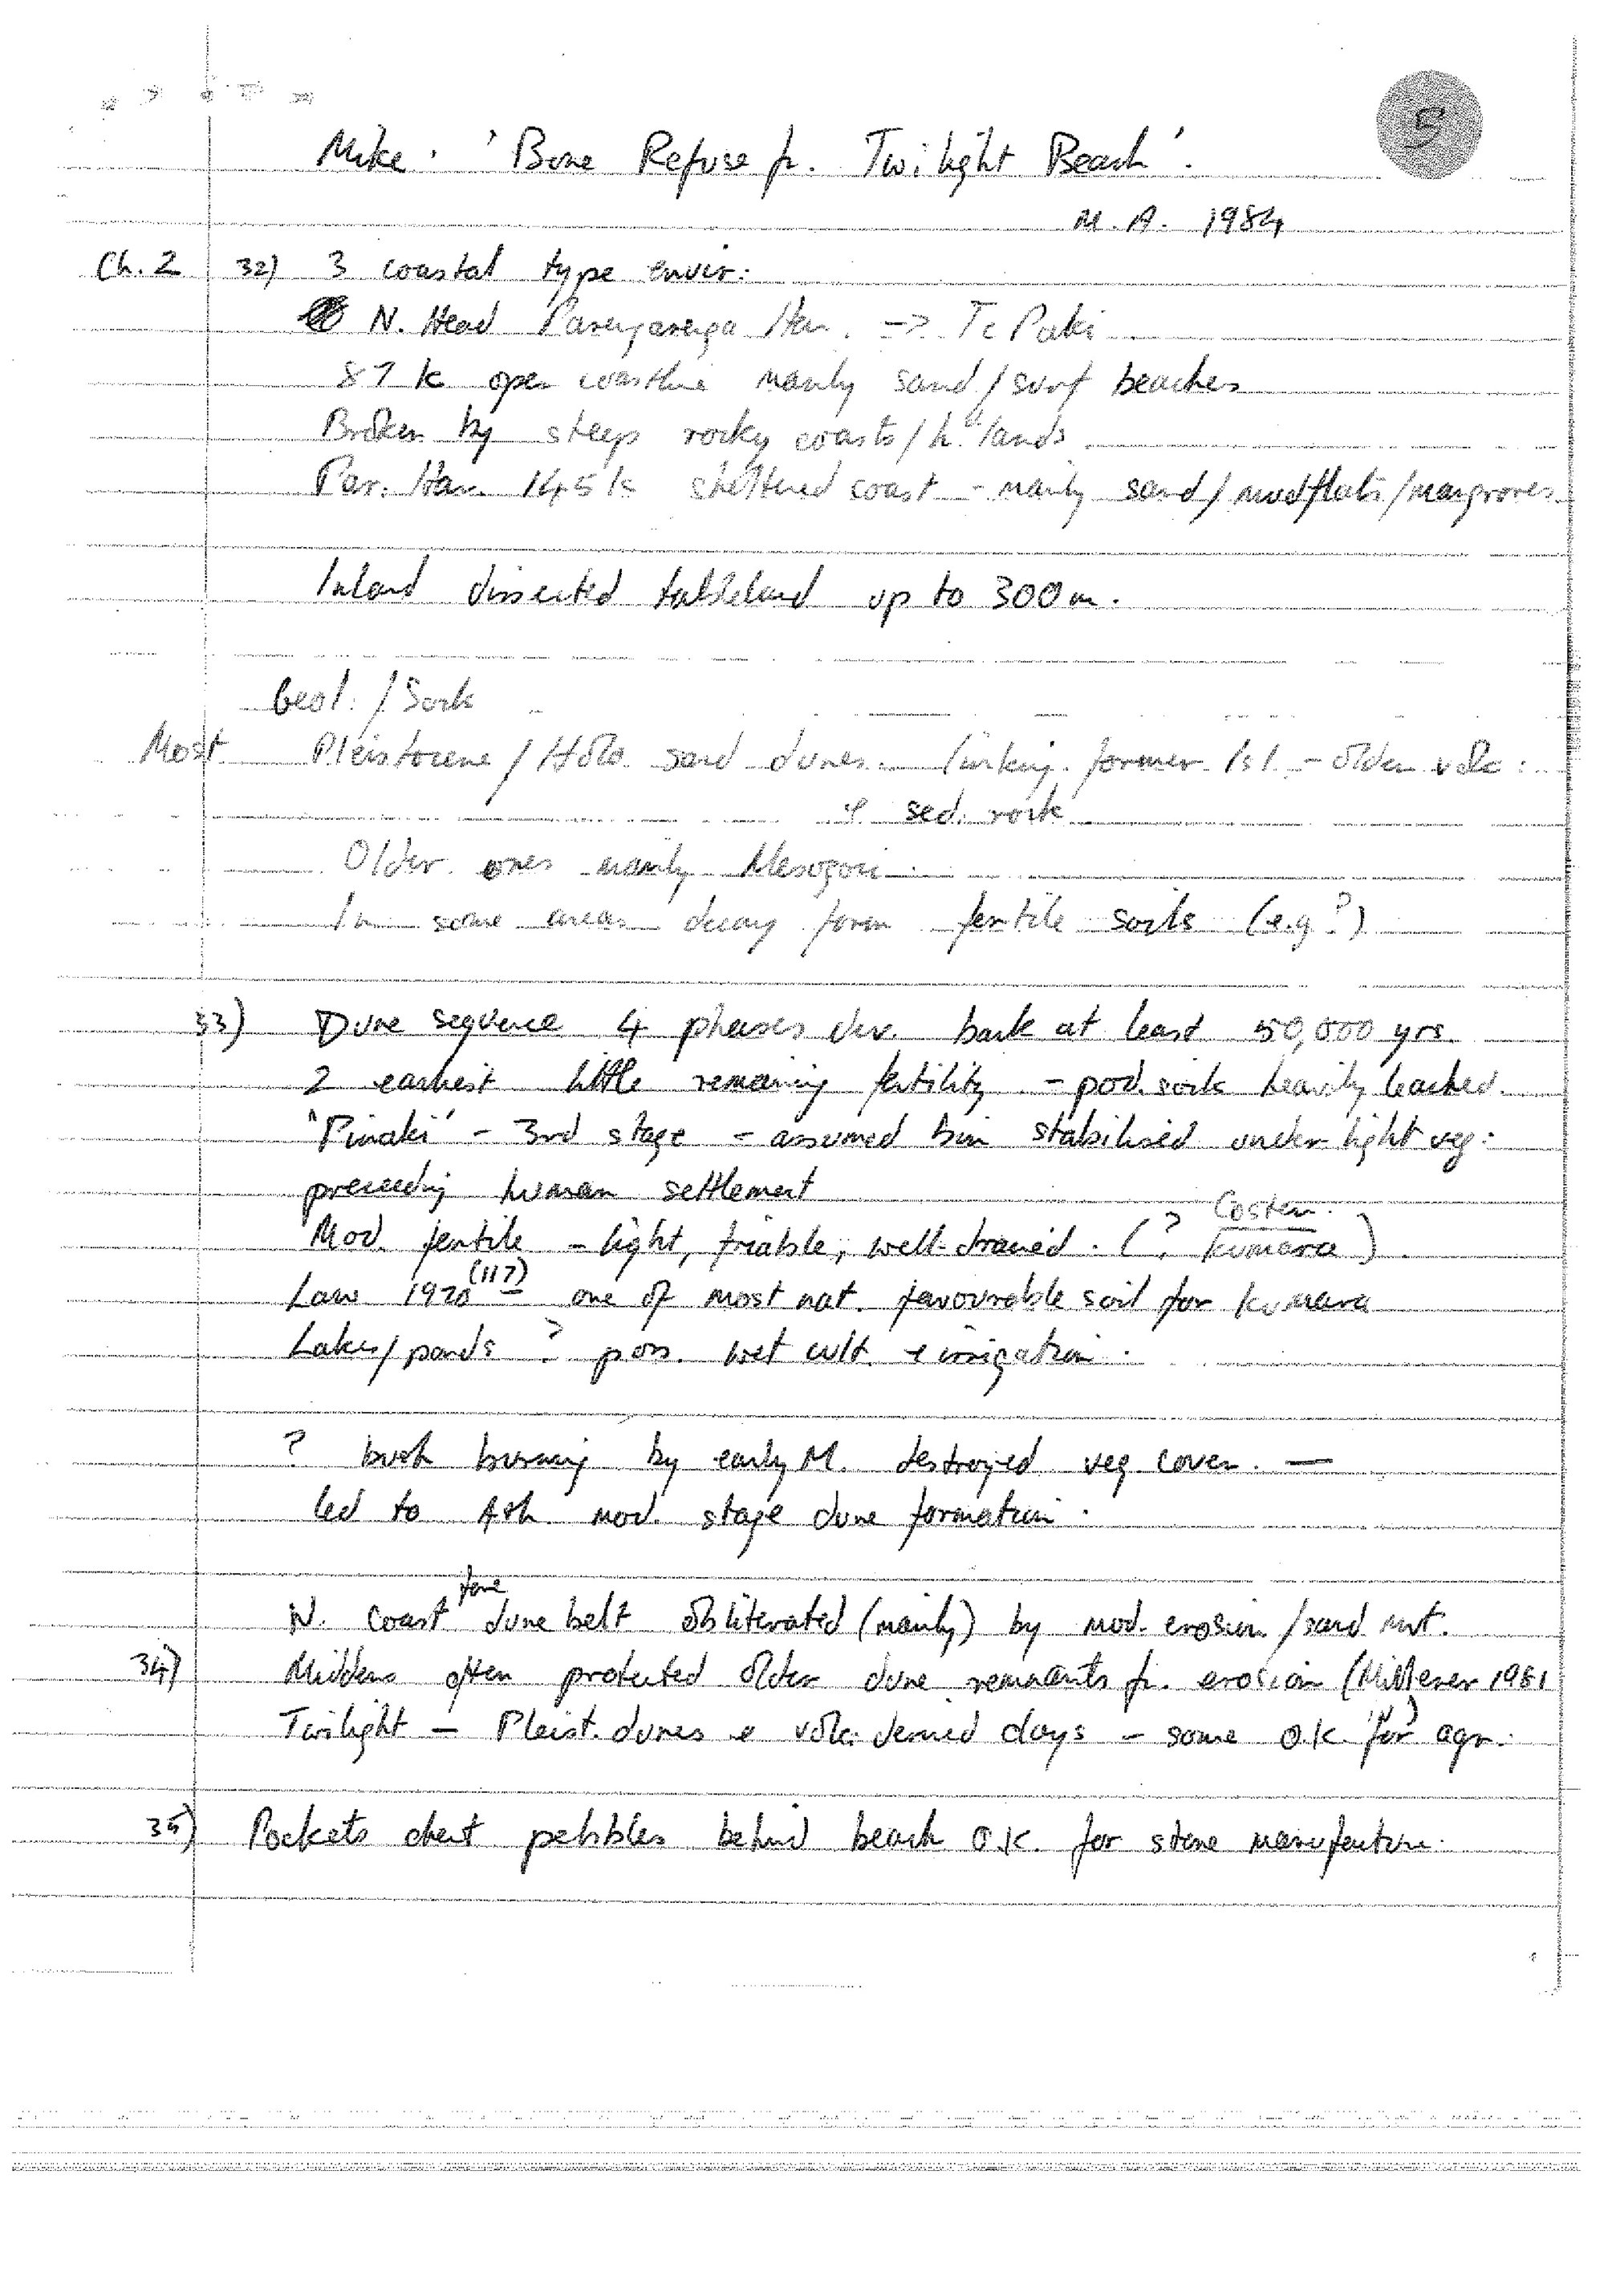 5
Mike. 'Bone Refuse fr. Twilight Beach'.
M.A. 1984
Ch. 2 32) 3 coastal type envir:
N. Head Parengarenga Har. -> Te Paki
87 k open coastline mainly sand/surf beaches
Broken by steep rocky coasts/h.lands
Par. Har. 145 k sheltered coast - mainly sand/mudflats/mangroves
Inland dissected tableland up to 300m.
Geol. / Soils
Most Pleistocene / Holo. sand dunes linking former Isl. - older volc.
& sed. rock
Older ones mainly Mesozoic
In some areas decay form fertile soils (e.g.?)
33) Dune sequence 4 phases dev. back at least 50,000 yrs.
2 earliest little remaining fertility - pod. soils heavily leached.
'Pinaki' - 3rd stage - assumed bin stabilised under light veg.
preceeding human settlement
Coster.
Mod. fertile - light, friable, well-drained. (? kumara).
Law 1970 (117) one of most nat. favourable soil for kumara
Lakes/ponds ? poss. wet cult. & irrigation.
? bush burning by early M. destroyed veg cover. —
led to 4th mod. stage dune formation.
N. Coast fore dune belt obliterated (mainly) by mod. erosion/sand mvt.
34) Middens often protected older dune remnants fr. erosion (Millener 1981
Twilight - Pleist. dunes & volc. derived clays - some O.K. for agr.
35) Pockets chert pebbles behind beach O.K. for stone manufacture.